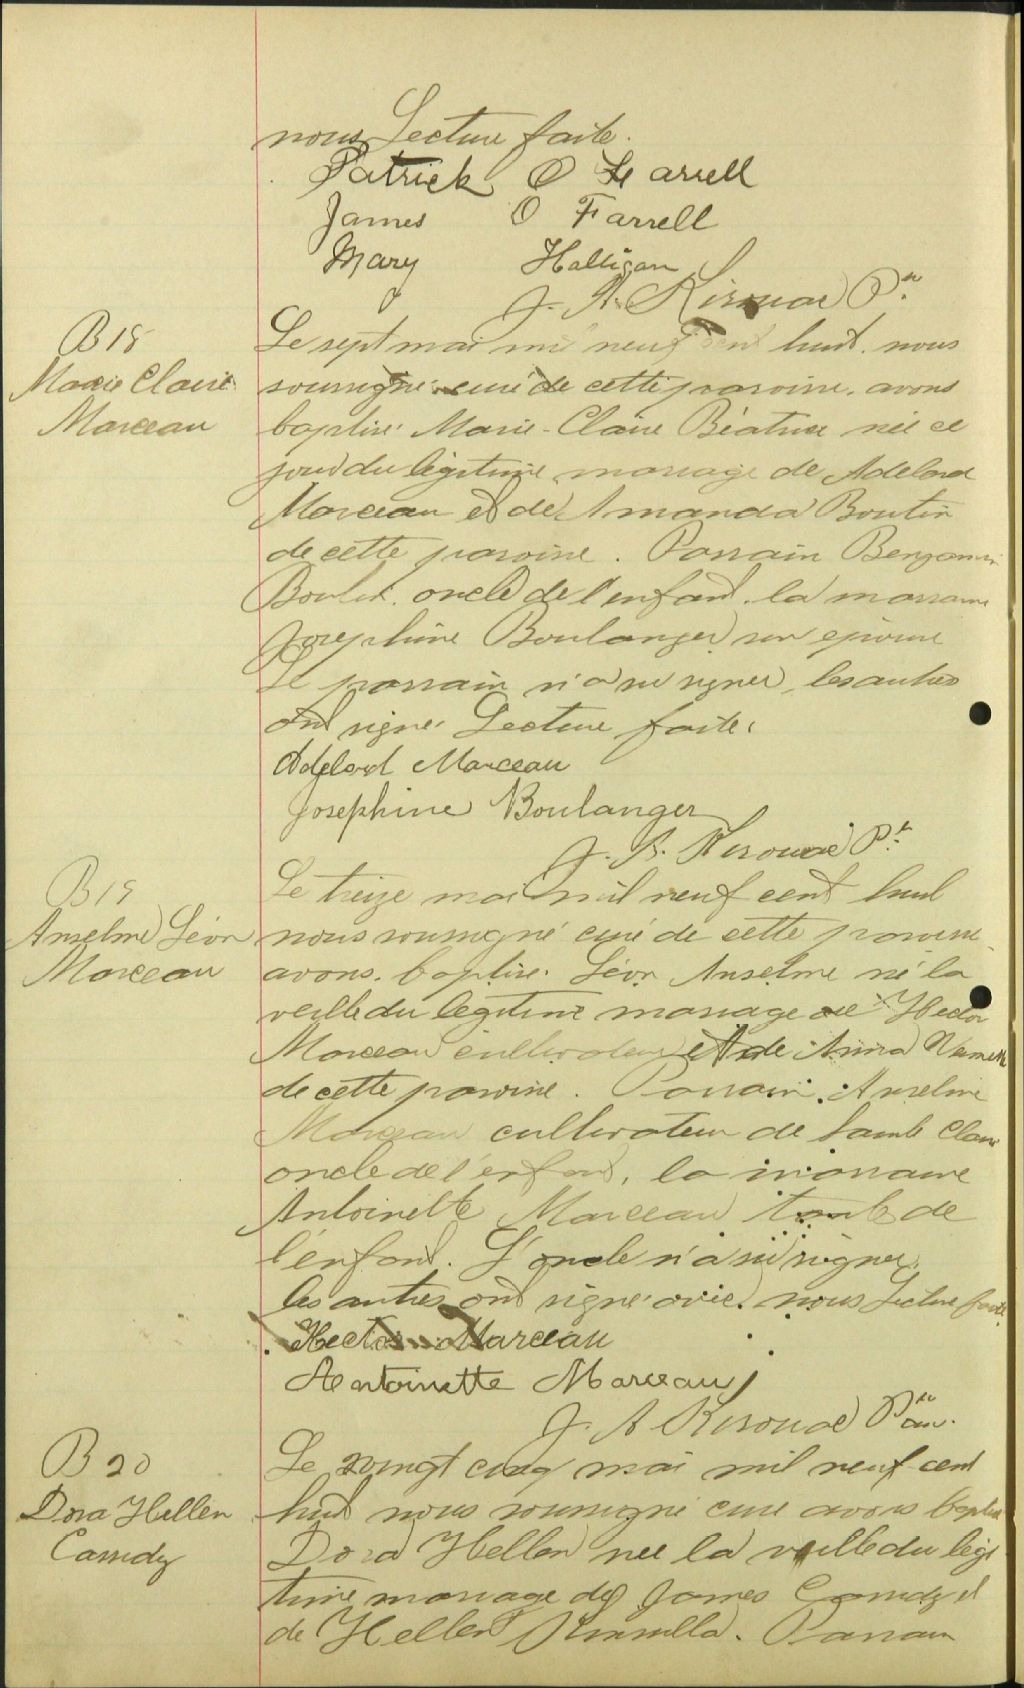 nous Lecture faite.
Patrick O Farrell
James O Farrell
Mary Halligan
J. A. Kirouac Ptre
B 18
Marie Claire
Marceau
Le sept mai mil neuf cent huit, nous
soussigné curé de cette paroisse, avons
baptisé Marie-Claire Béatrice née ce
jour du légitime mariage de Adelard
Marceau et de Amanda Boutin
de cette paroisse. Parrain Benjamin
oncle de l'enfant, la marraine
Josephine Boulanger son épouse
Le parrain n'a su signer, les autres
ont signé. Lecture faite.
Adelard Marceau
Josephine Boulanger
J. A. Kirouac Ptre
B 19
Anselme Léon
Marceau
Le treize mai mil neuf cent huit
nous soussigné curé de cette paroisse
avons baptisé Léon Anselme né la
veille du légitime mariage de Hector
Marceau cultivateur et de Anna
de cette paroisse. Parrain Anselme
Marceau cultivateur de Sainte Claire
oncle de l'enfant, la marraine
Antoinette Marceau tante de
l'enfant. L'oncle n'a su signer,
les autres ont signé avec nous Lecture faite
Hector Marceau
Antoinette Marceau
J. A. Kirouac Ptre
B 20
Dora Hellen
Cassidy
Le vingt cinq mai mil neuf cent
huit nous soussigné curé avons baptisé
Dora Hellen née la veille du légi
time mariage de James Cassidy et
de Hellen Kinsella. Parrain